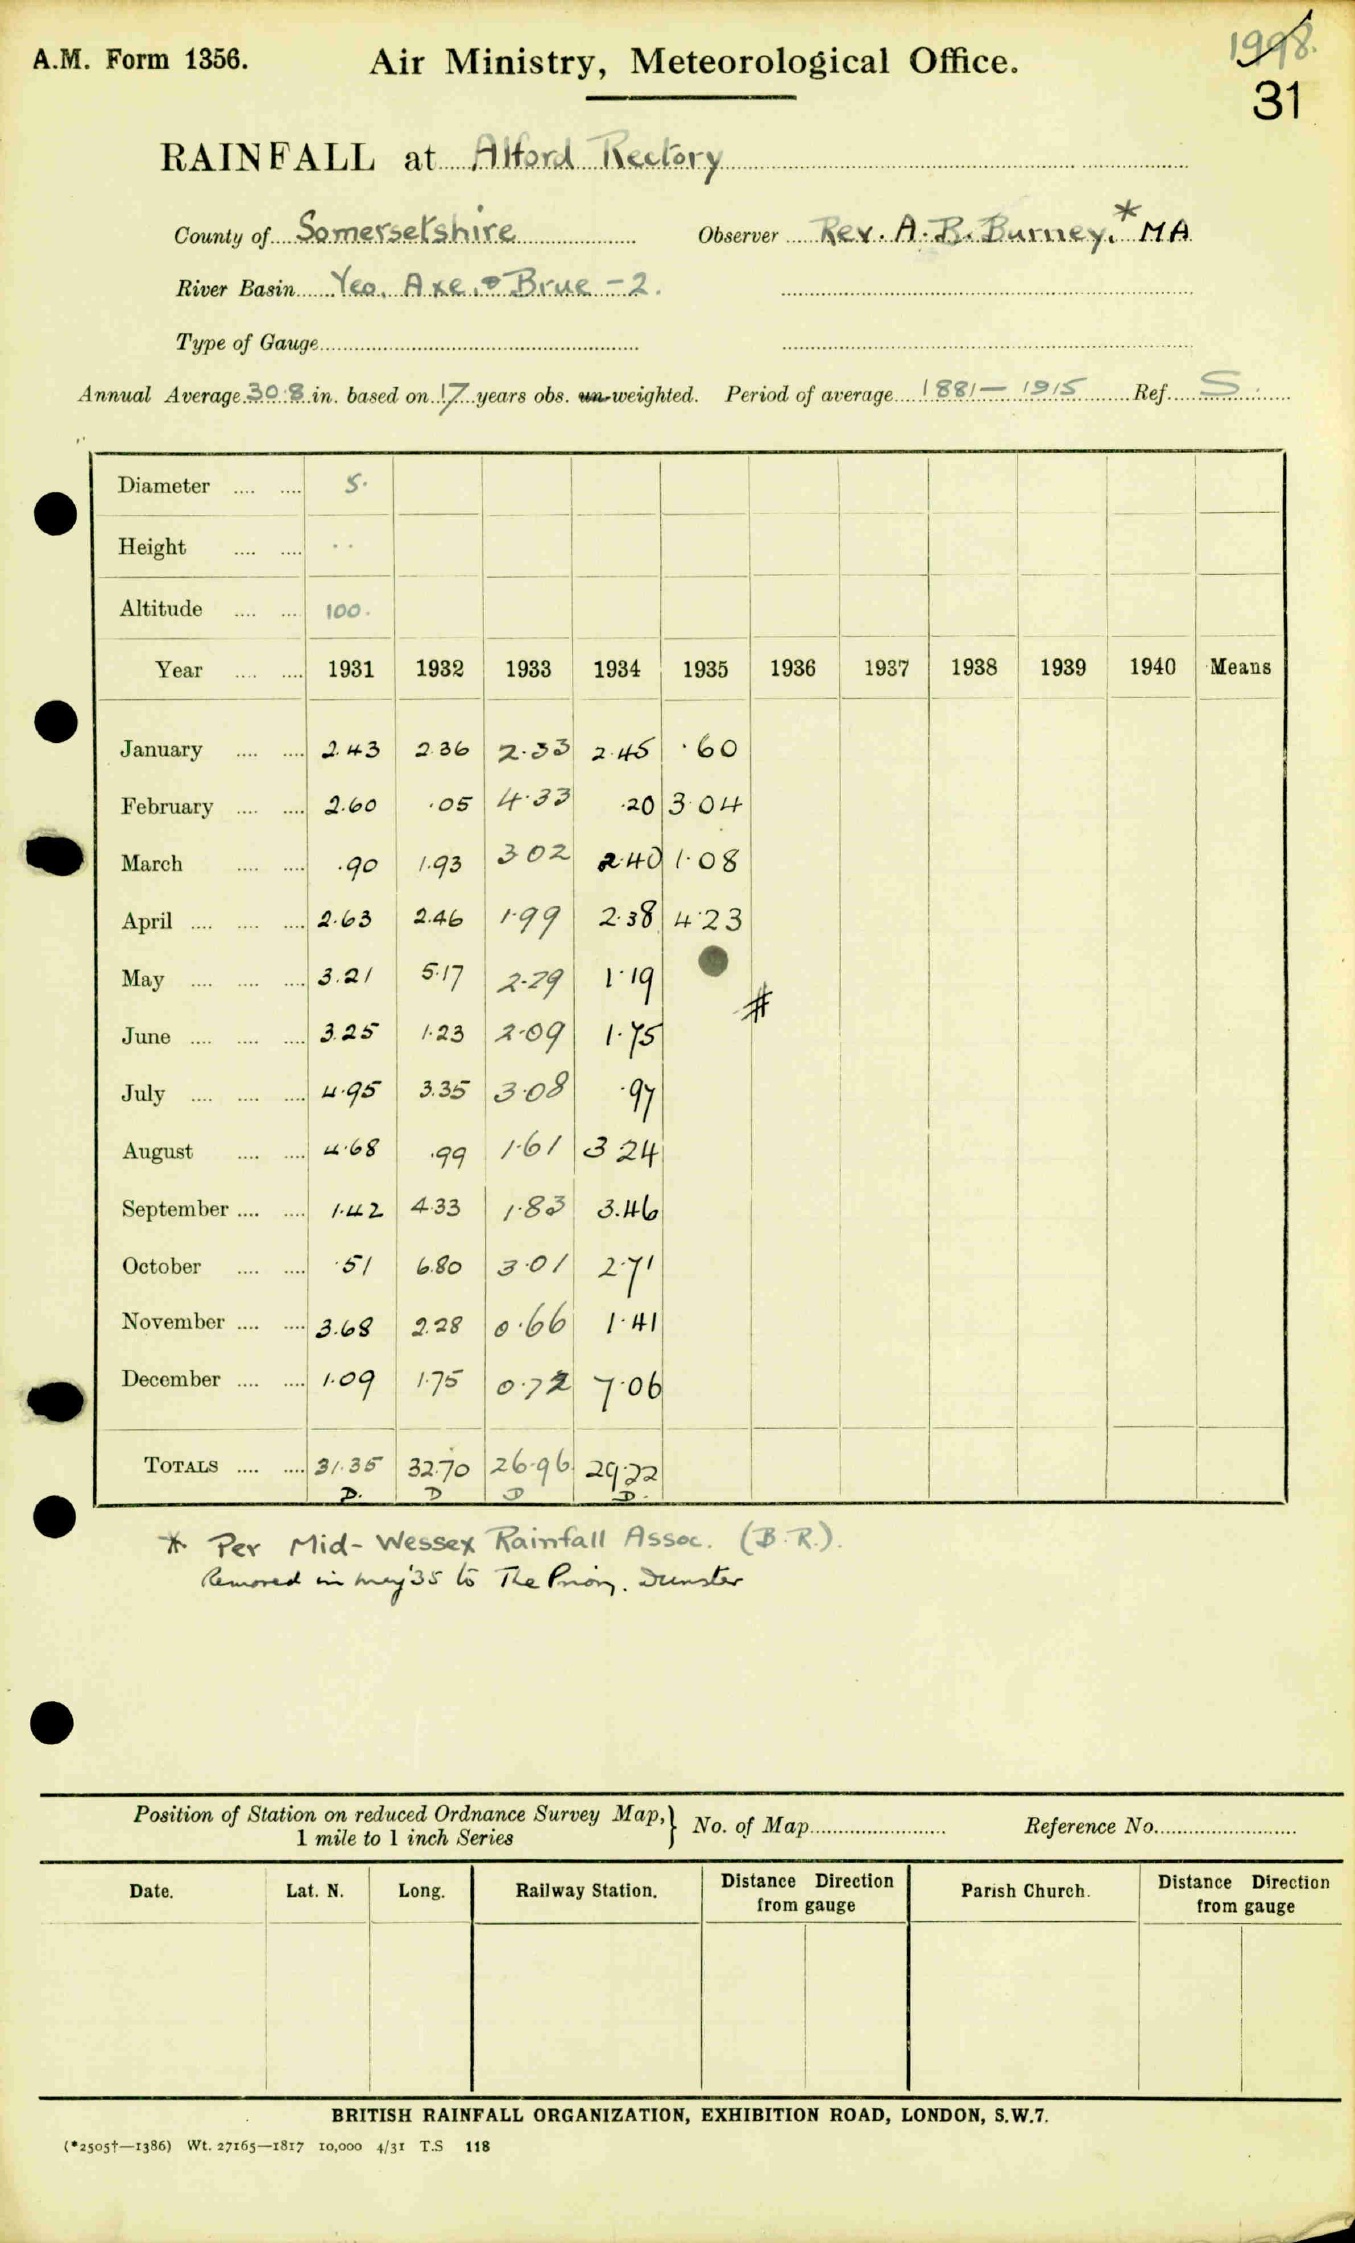 A.M. Form 1356.
Air Ministry, Meteorological Office.
1998.
31
RAINFALL at Alford Rectory
County of Somersetshire Observer Rev. A. B. Burney.* MA
River Basin Yeo, Axe, & Brue - 2.
Type of Gauge
Annual Average 30.8 in. based on 17 years obs. un-weighted. Period of average 1881 - 1915 Ref. S.
Diameter 5.
Height ..
Altitude 100.
Year 1931 1932 1933 1934 1935 1936 1937 1938 1939 1940 Means
January 2.43 2.36 2.33 2.45 .60
February 2.60 .05 4.33 .20 3.04
March .90 1.93 3.02 2.40 1.08
April 2.63 2.46 1.99 2.38 4.23
May 3.21 5.17 2.29 1.19
#
June 3.25 1.23 2.09 1.75
July 4.95 3.35 3.08 .97
August 4.68 .99 1.61 3.24
September 1.42 4.33 1.83 3.46
October .51 6.80 3.01 2.71
November 3.68 2.28 0.66 1.41
December 1.09 1.75 0.72 7.06
TOTALS 31.35 32.70 26.96 29.22
D. D D D.
* Per Mid-Wessex Rainfall Assoc. (B.R.).
Removed in May '35 to The Priory. Dunster
Position of Station on reduced Ordnance Survey Map, } No. of Map Reference No.
1 mile to 1 inch Series
Date. Lat. N. Long. Railway Station. Distance Direction from gauge Parish Church. Distance Direction from gauge
BRITISH RAINFALL ORGANIZATION, EXHIBITION ROAD, LONDON, S.W.7.
(*2505†—1386) Wt. 27165—1817 10,000 4/31 T.S 118